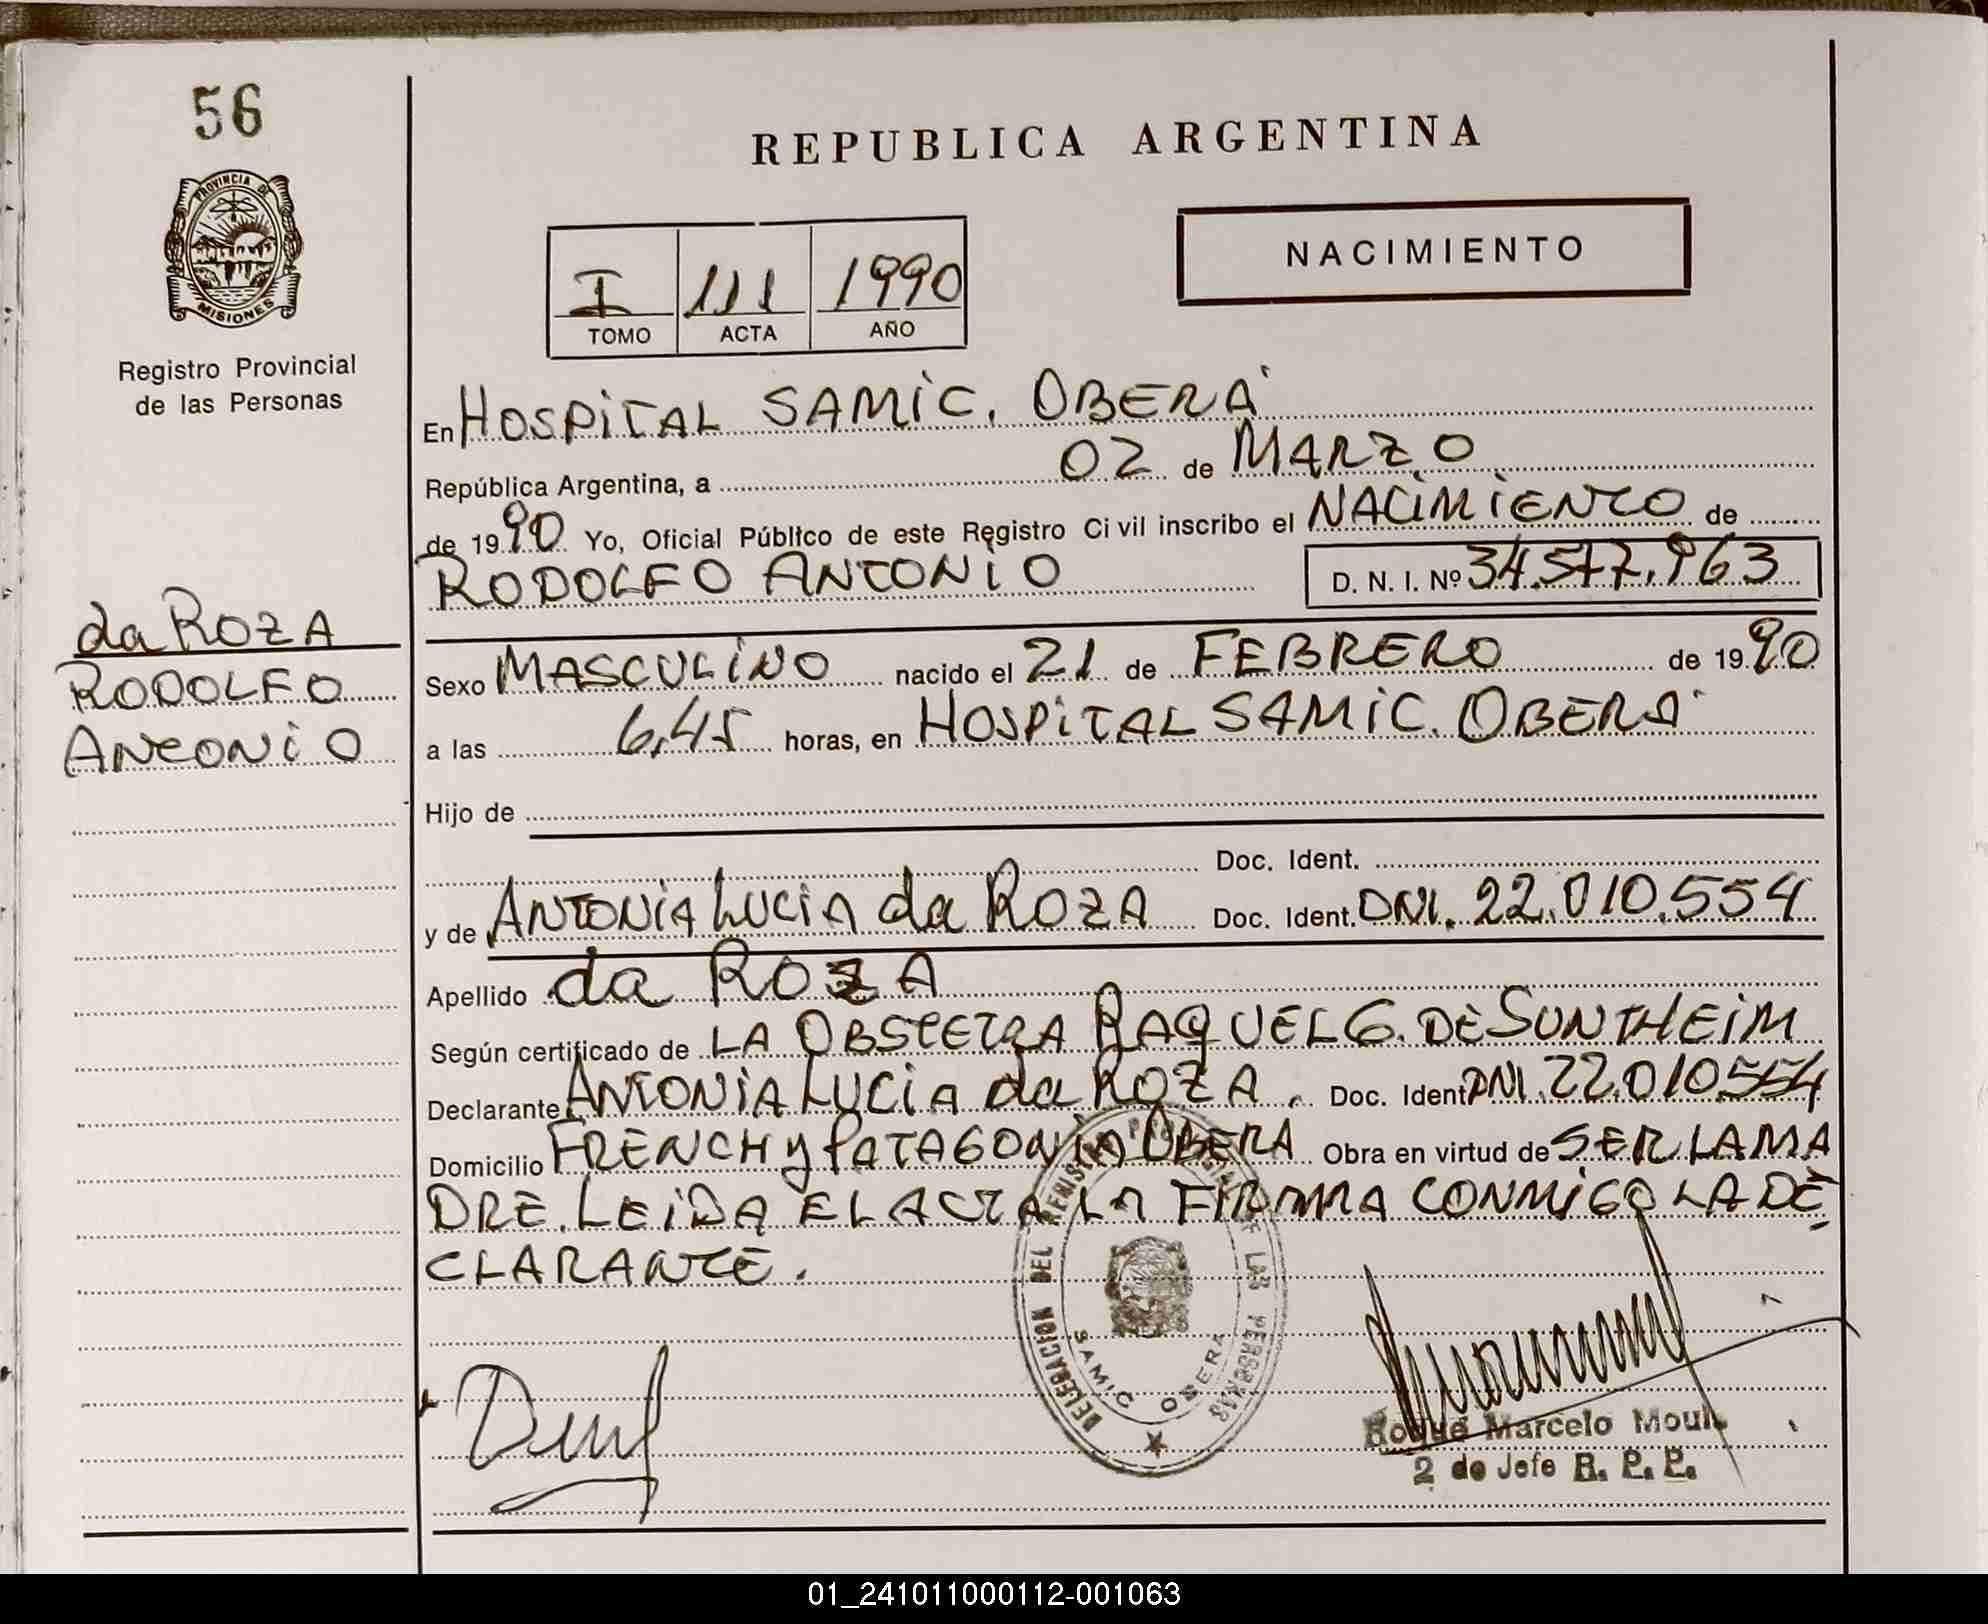 56
REPUBLICA ARGENTINA
PROVINCIA DE
MISIONES
Registro Provincial
de las Personas
NACIMIENTO
I 111 1990
TOMO ACTA AÑO
En HOSPITAL SAMIC. OBERÁ
República Argentina, a 02 de MARZO
de 1990 Yo, Oficial Público de este Registro Civil inscribo el NACIMIENTO de
RODOLFO ANTONIO D. N. I. Nº 34.517.963
da ROZA
RODOLFO
ANTONIO
Sexo MASCULINO nacido el 21 de FEBRERO de 1990
a las 6,45 horas, en HOSPITAL SAMIC. OBERÁ
Hijo de
Doc. Ident.
y de ANTONIA LUCIA da ROZA Doc. Ident. DNI. 22.010.554
Apellido da ROZA
Según certificado de LA OBSTETRA RAQUEL G. DE SUNTHEIM
Declarante ANTONIA LUCIA da ROZA. Doc. Ident DNI. 22.010.554
Domicilio FRENCH y PATAGONIA OBERA Obra en virtud de SER LA MA
DRE. LEIDA EL ACTA LA FIRMA CONMIGO LA DE
CLARANTE.
DELEGACION DEL REGISTRO PROVINCIAL DE LAS PERSONAS
SAMIC OBERA
Roque Marcelo
2 do Jefe R. P. P.
01_241011000112-001063